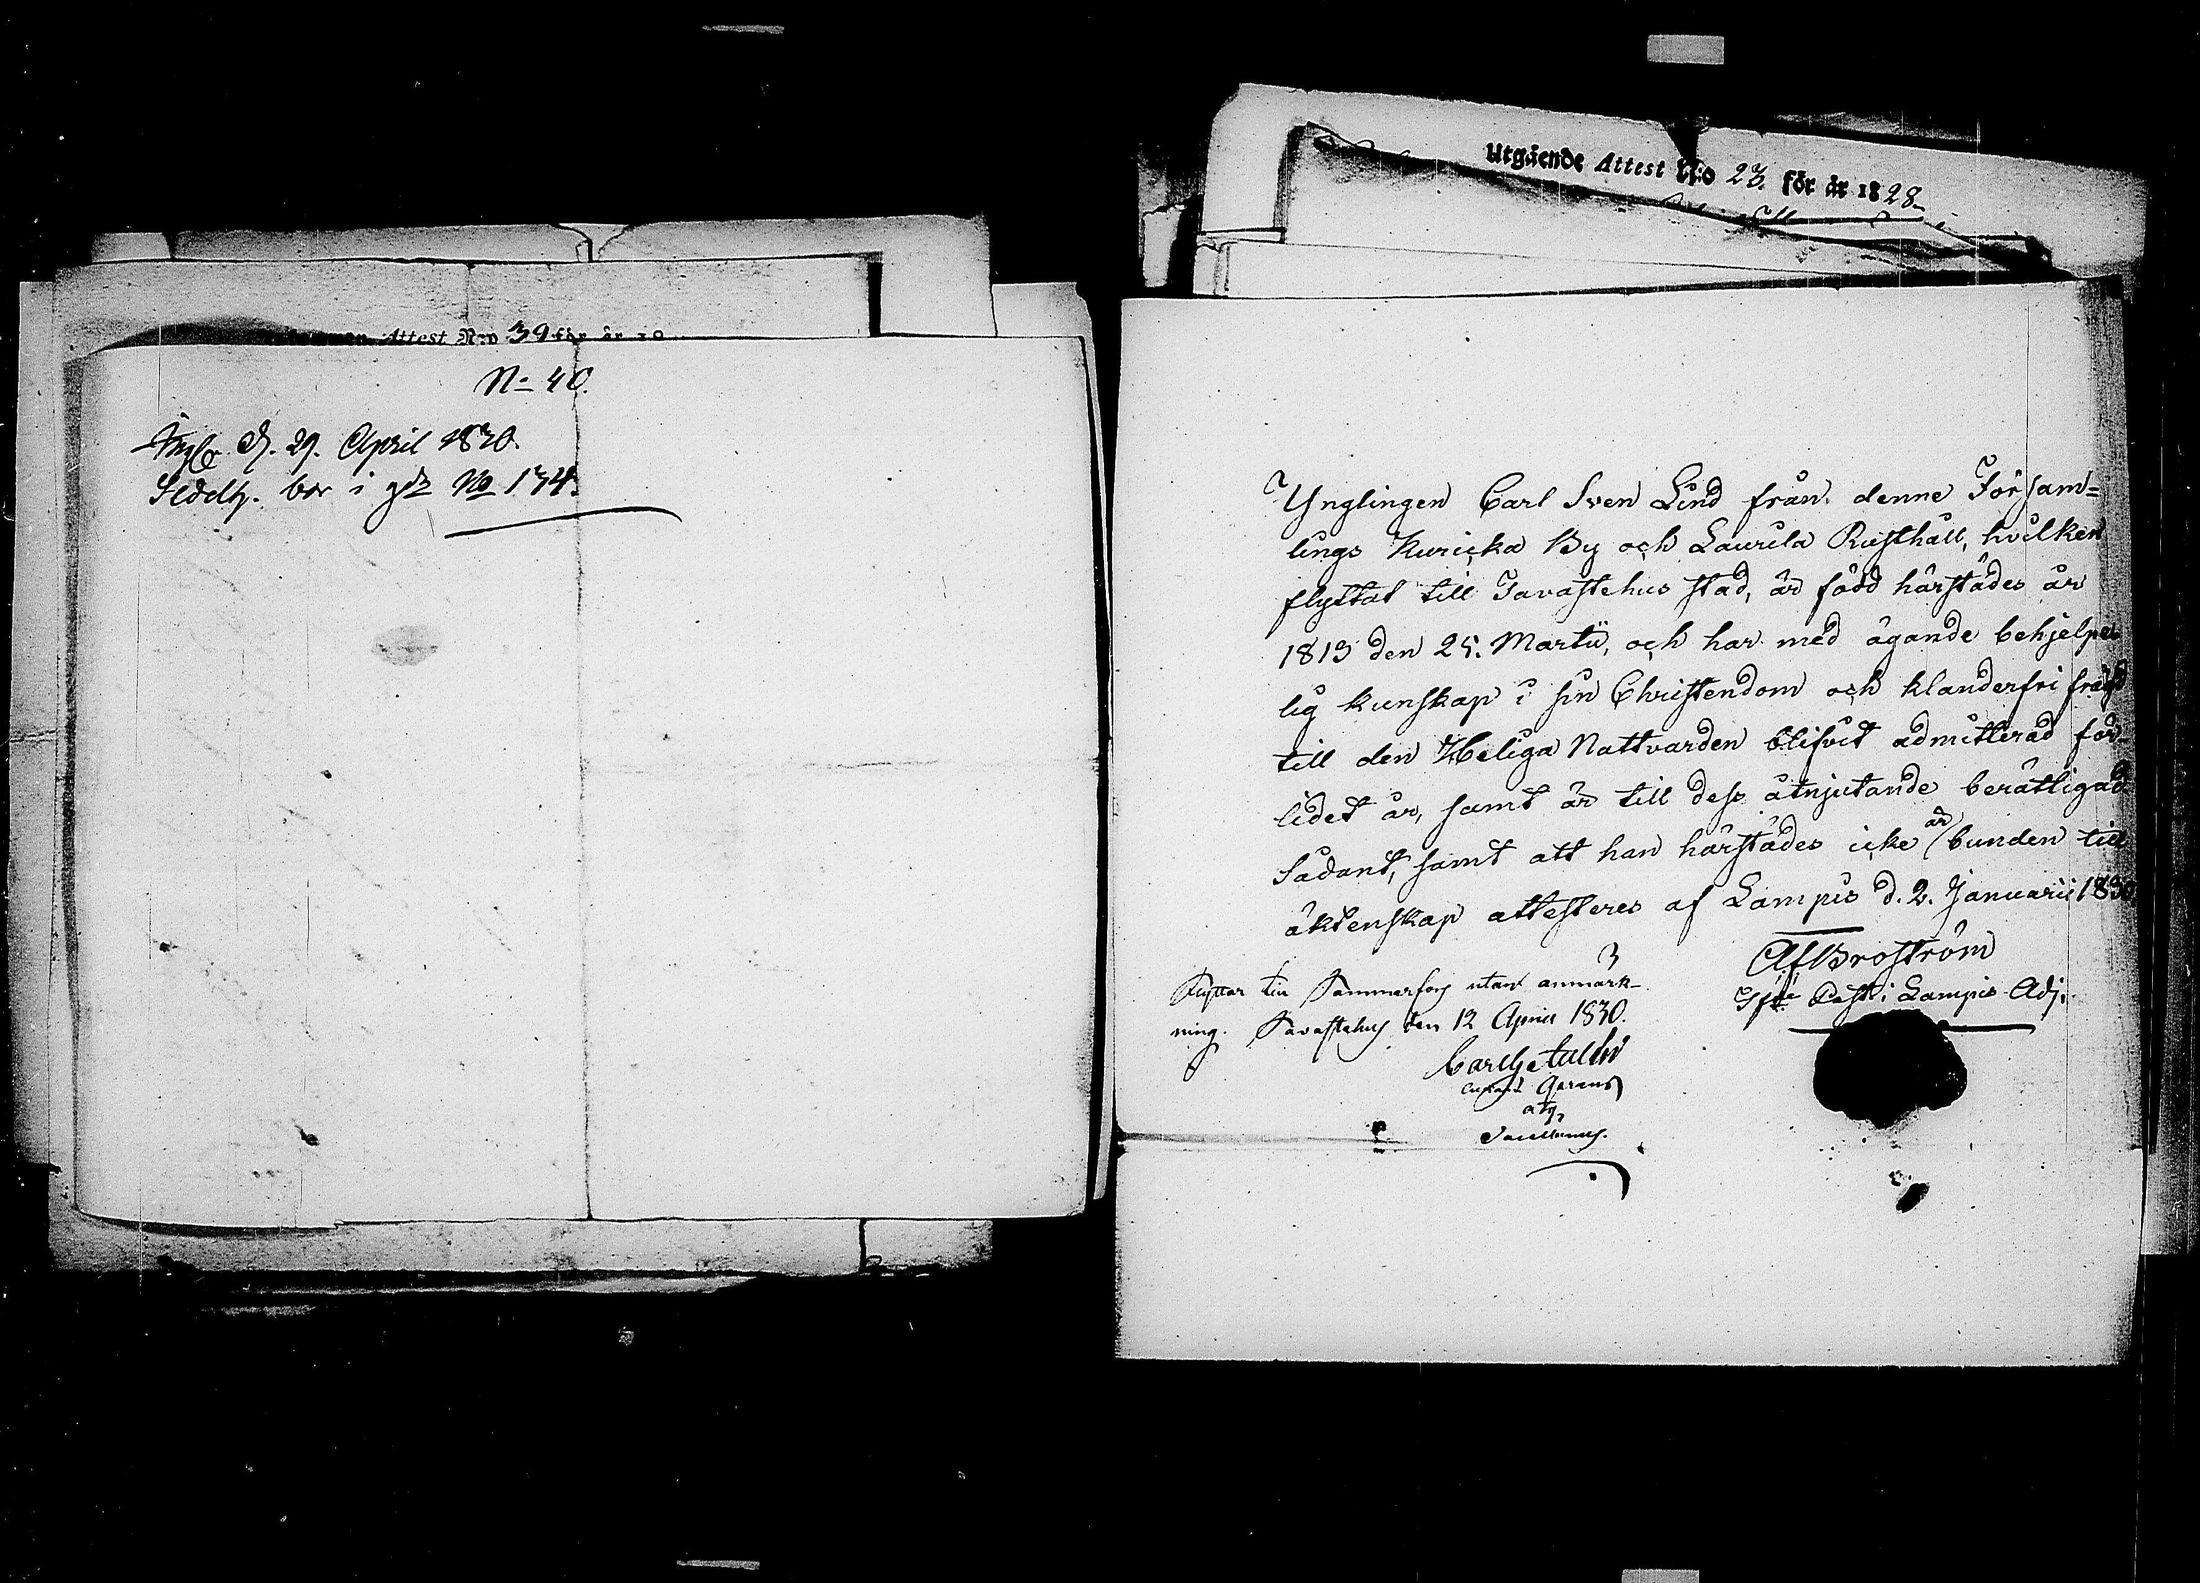 Attest N:o 39 för år 18
N= 40.
d. 29. April 1830.
bor i gd N:o 134.
Utgående Attest N:o 23. för år 1828.
Ynglingen Carl Sven Lind från denne Försam=
lings Kuricka By och Laurila Rusthåll, hvilken
flyttat till Tavastehus stad, är född härstädes år
1813 den 25. Martii, och har med ägande behjelpe
lig kunskap i sin Christendom och klanderfri frägd
till den Heliga Nattvarden blifvit admitterad för
lidet år, samt är till dess åtnjutande berättigad
Sådant, samt att han härstädes icke är bunden till
äktenskap attesteres af Lampis d. 2. Januarii 1830
Af Broström
Past i Lampis Adj.
3
Flyttar till Hammarfors utan anmärk-
ning. Tavastehus den 12 April 1830.
Carl Getulin
Gerens
atq
Sacellanus.